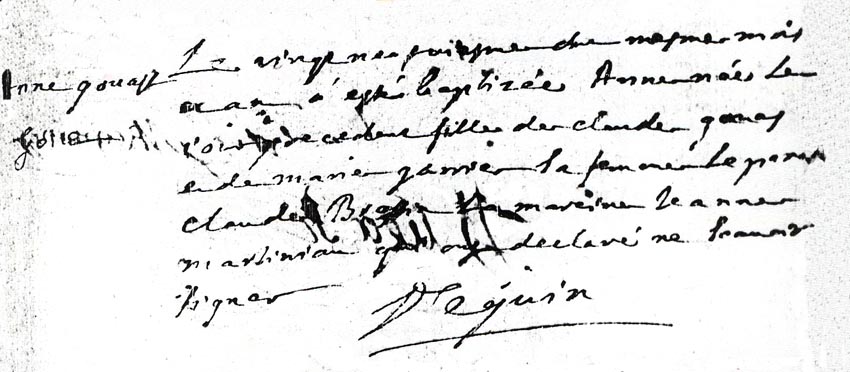 Anne gouast
Le vingt neufviesme du mesme mois
et an a esté baptizée Anne née le
jour precedent fille de claude gouas
et de marie garnier sa femme le parain
claude la mareine Jeanne
martineau qui ont declaré ne scavoir
signer
Seguin